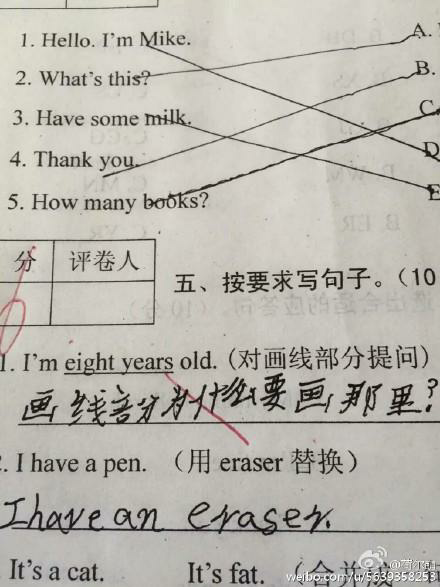 1. Hello. I'm Mike.
A.
2. What's this?
B.
3. Have some milk.
C
4. Thank you.
D
5. How many books?
E
分 评卷人
五、按要求写句子。(10
1. I'm eight years old. (对画线部分提问)
画线部分为什么要画那里?
2. I have a pen. (用 eraser 替换)
I have an eraser.
It's a cat. It's fat.
weibo.com/u/5639358253